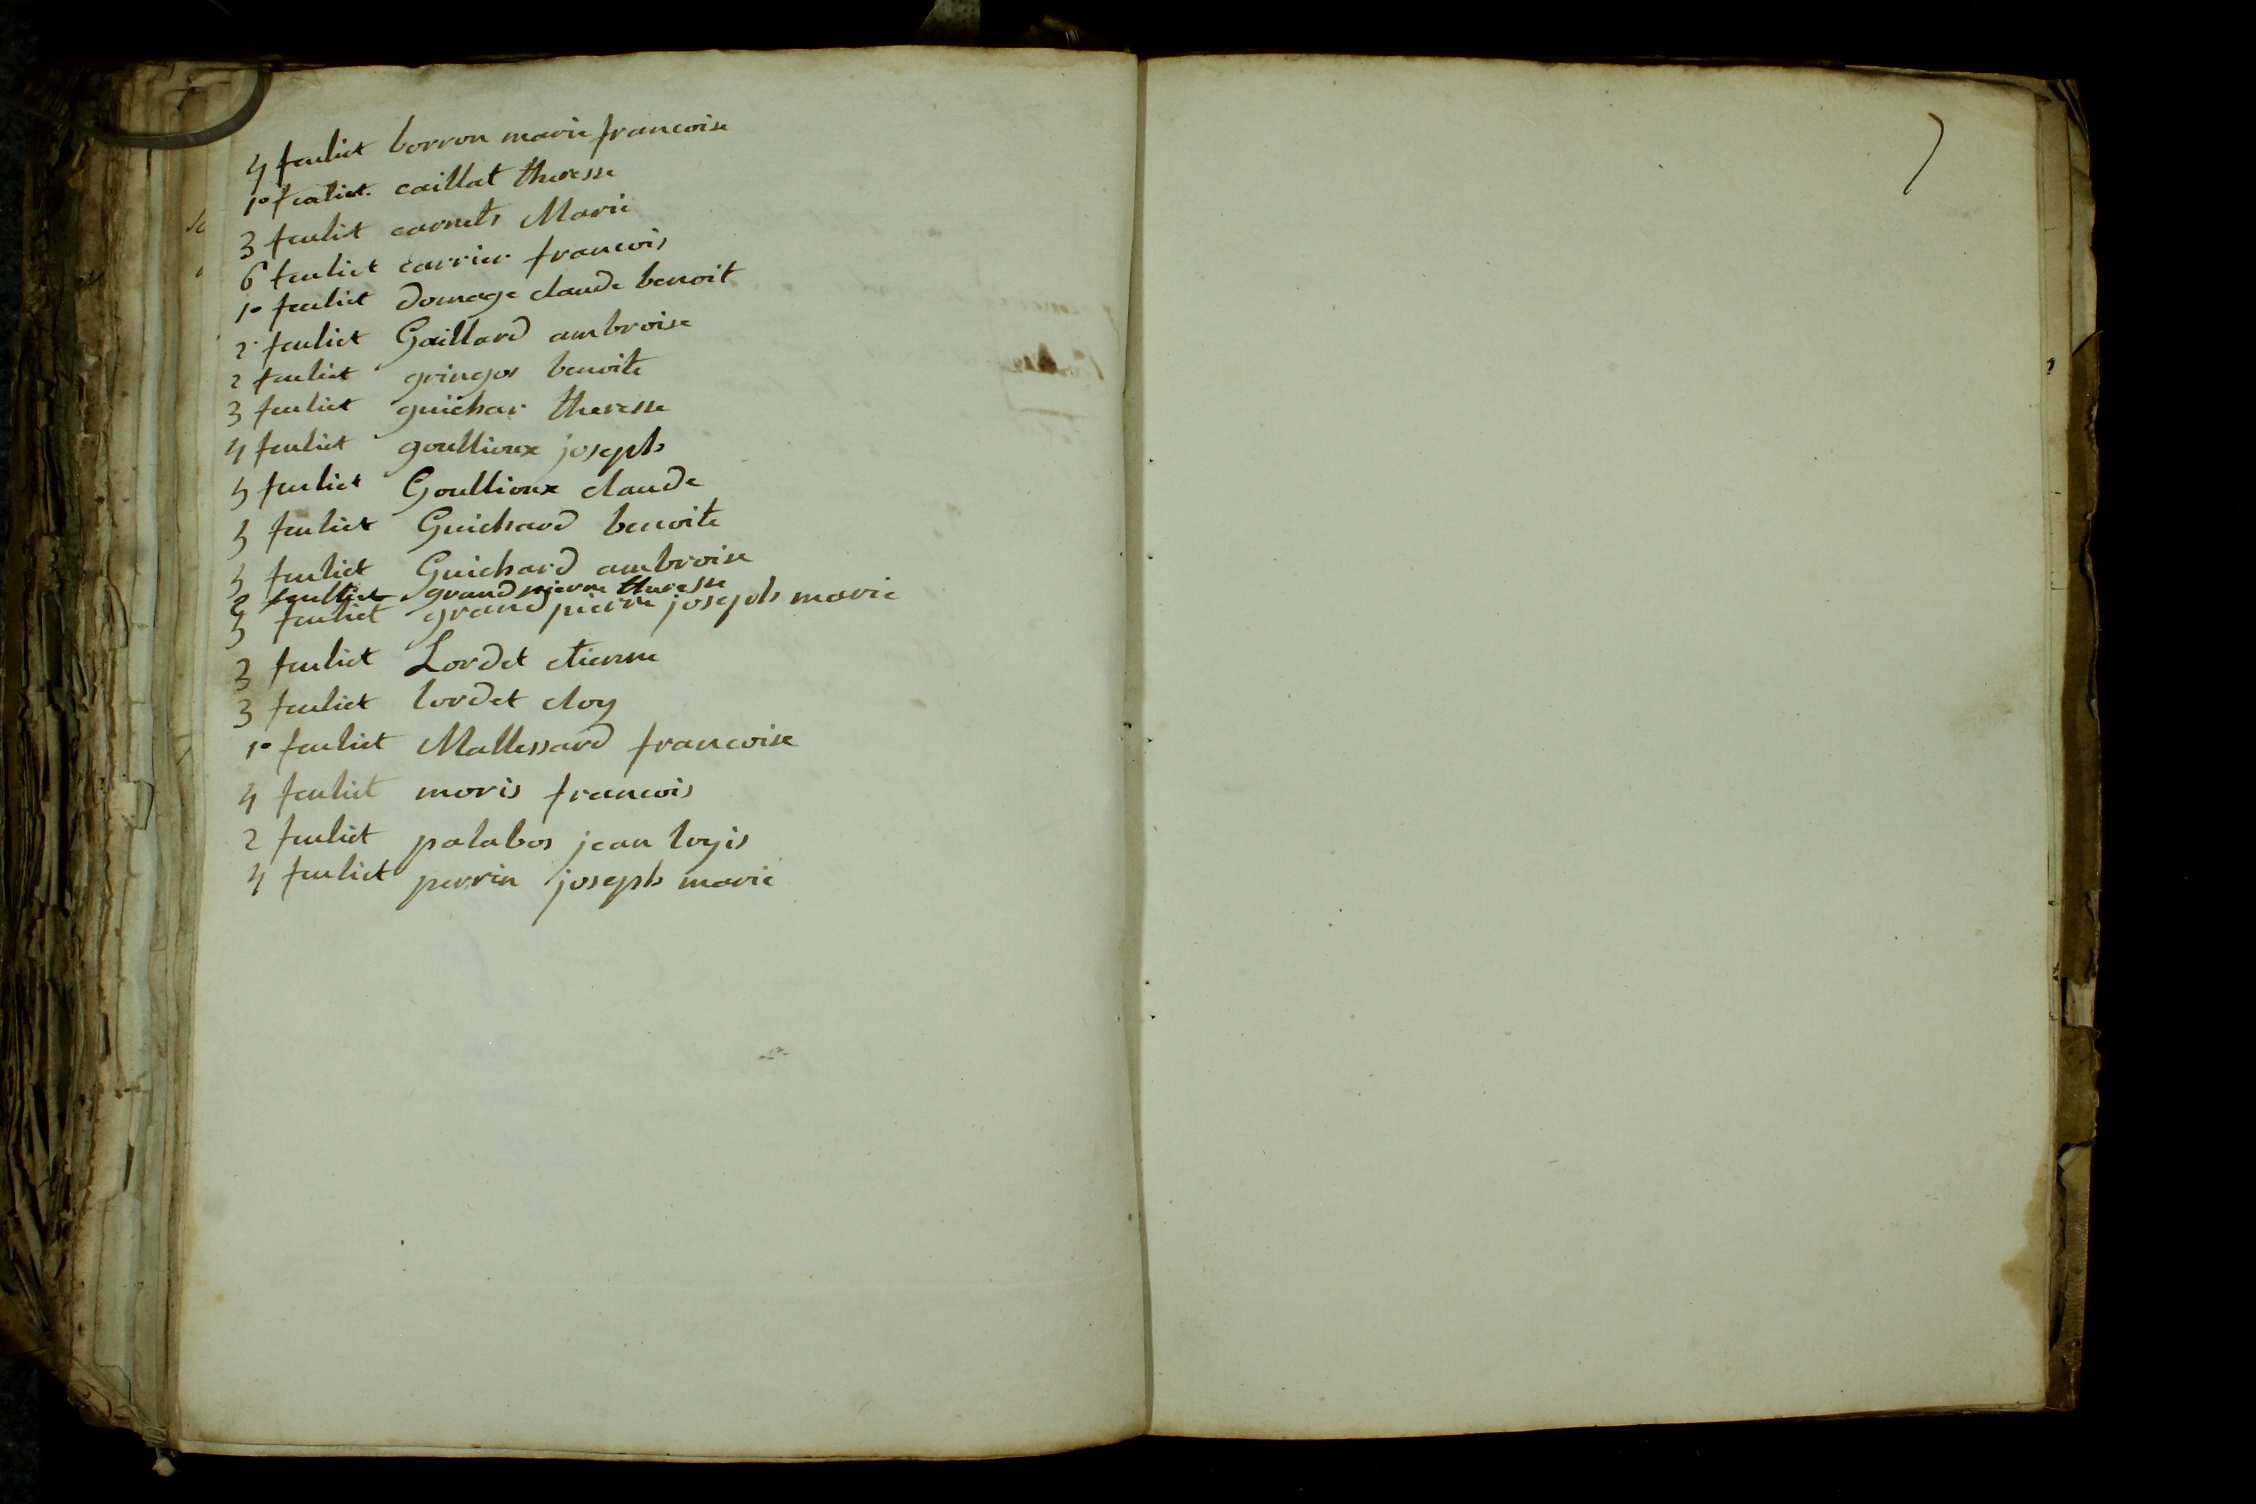 4 feuliet borron marie francoise
1º feuliet caillat theresse
3 feuliet carnets Marie
6 feuliet carrier francois
1º feuliet domage claude benoit
2 feuliet Gaillard ambroise
2 feuliet gringos benoite
3 feuliet guichar theresse
4 feuliet goullioux joseph
5 feuliet Goullioux claude
5 feuliet Guichard benoite
5 feuliet Guichard ambroise
2 feulliet grandpierre theresse
5 feuliet grandpierre joseph marie
3 feuliet Lordet etienne
3 feuliet lordet eloy
1º feuliet Mallessard francoise
4 feuliet moris francois
2 feuliet palabos jean loyis
4 feuliet perrin joseph marie
7